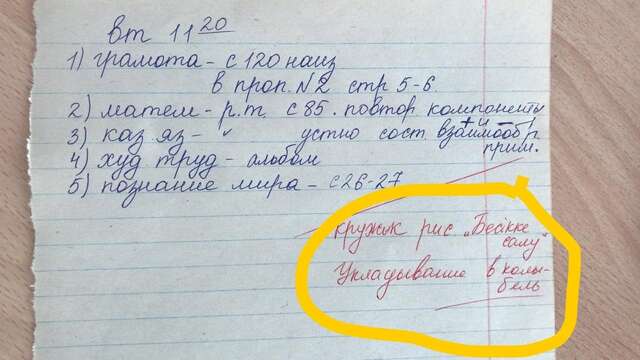 вт 11²⁰
1) грамота - с 120 наиз
в проп. N2 стр 5-6.
2) матем - р.т. с 85. повтор. компоненты + и -
3) каз яз - " устно сост. взаимооб р. прим.
4) худ труд - альбом
5) познание мира - с 26-27
кружок рис „Бесікке
салу"
Укладывание в колы-
бель